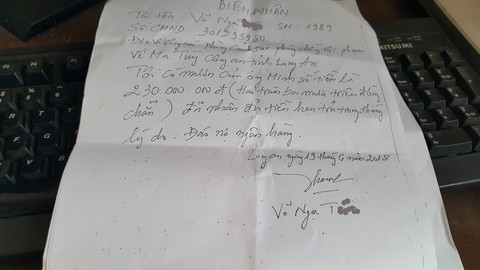 BIÊN NHẬN
Tôi tên Võ Nga SN 1989
Số CMND 301
Đơn vị công tác Phòng Cảnh sát phòng chống tội phạm
Về Ma Túy Công an tỉnh Long An
Tôi có mượn của ông Minh số tiền là
230.000.000 đ (Hai trăm ba mươi triệu đồng
chẵn) đã nhận đủ tiền hẹn trả trong tháng
lý do: Đáo nợ ngân hàng.
Long an ngày 19 tháng 6 năm 2018
Võ Nga T
MITSUMI